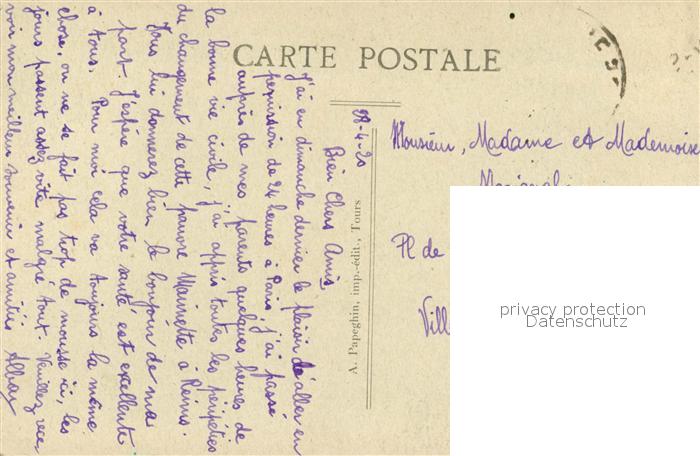 CARTE POSTALE
28-4-20
Bien Chers Amis
J'ai eu dimanche dernier le plaisir d'aller en
permission de 24 heures à Paris, j'ai passé
auprès de mes parents quelques heures de
la bonne vie civile, j'ai appris toutes les péripéties
du changement de cette pauvre à Reims.
Vous lui donnerez bien le bonjour de ma
part. J'espère que votre santé est excellente
à tous. Pour moi cela va toujours la même
chose, on ne se fait pas trop de mousse ici, les
jours passent assez vite malgré tout. Veuillez rece-
voir mon meilleur souvenir et amitiés
A. Papeghin, imp-édit., Tours
Monsieur, Madame et Mademoise
Pl de
Vill
privacy protection
Datenschutz